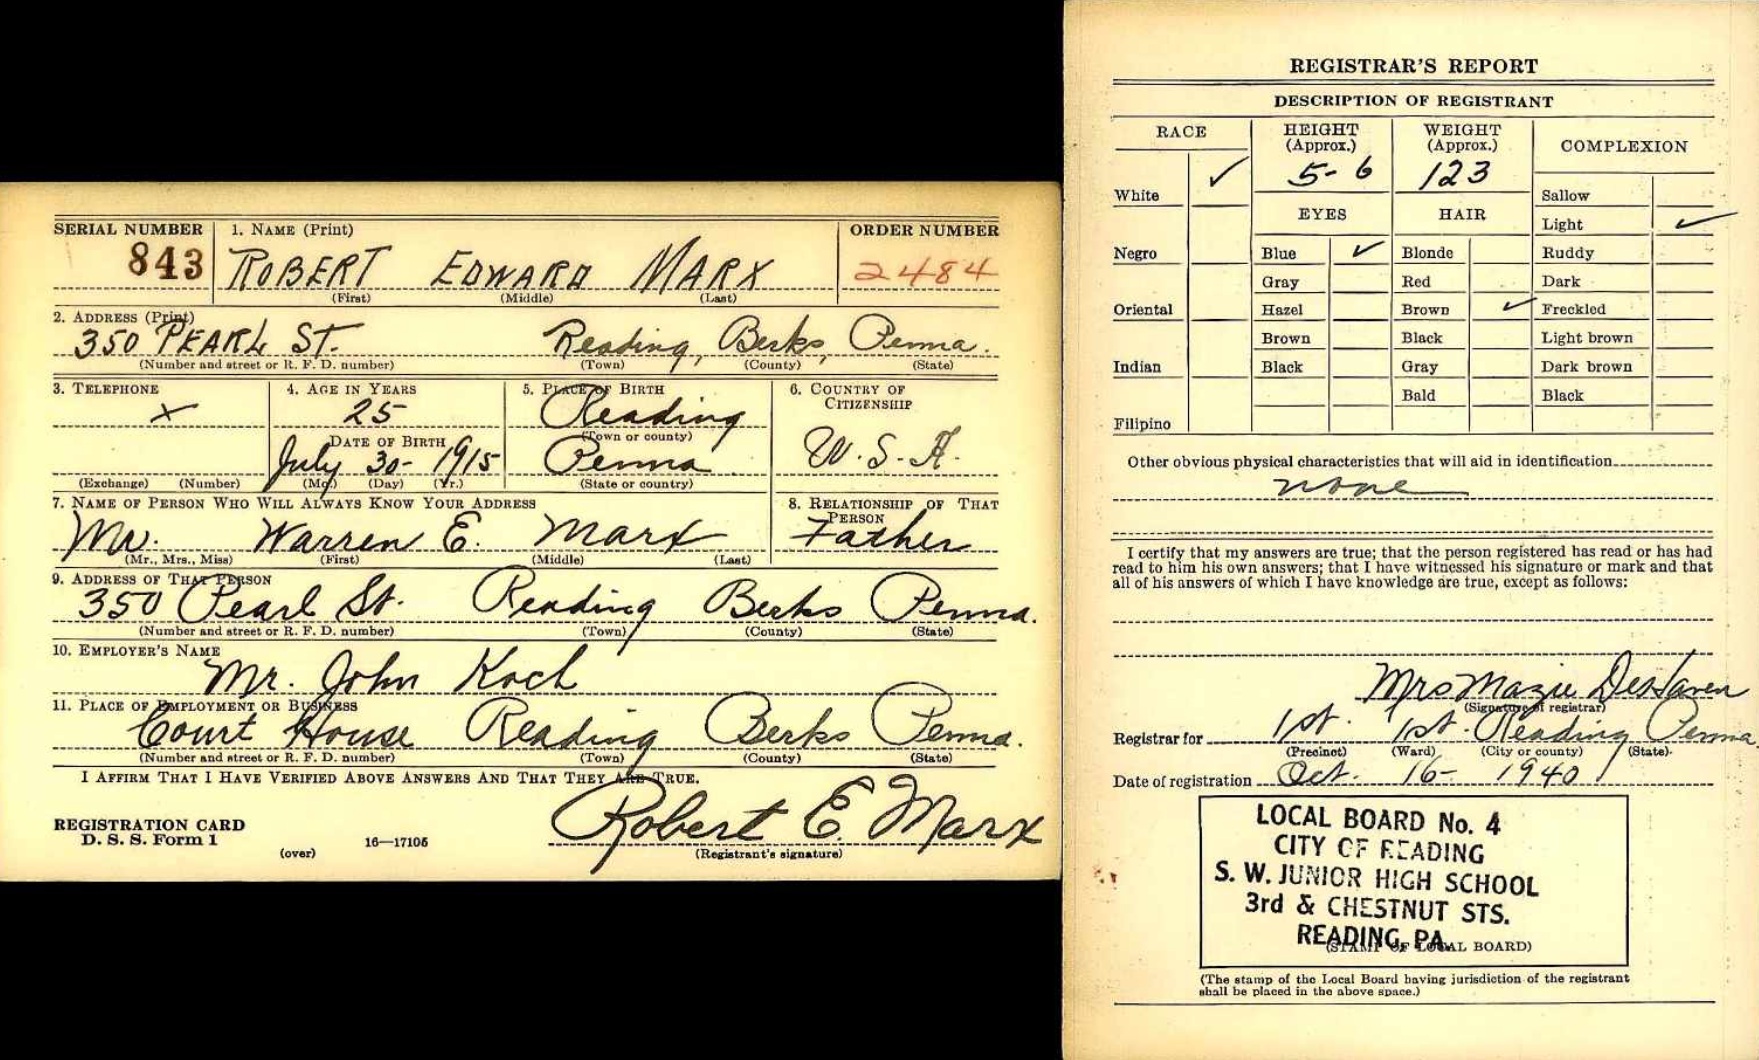 SERIAL NUMBER
843
1. NAME (Print)
ROBERT EDWARD MARX
(First) (Middle) (Last)
ORDER NUMBER
2484
2. ADDRESS (Print)
350 PEARL ST. Reading, Berks, Penna.
(Number and street or R. F. D. number) (Town) (County) (State)
3. TELEPHONE
x
(Exchange) (Number)
4. AGE IN YEARS
25
DATE OF BIRTH
July 30- 1915
(Mo.) (Day) (Yr.)
5. PLACE OF BIRTH
Reading
(Town or county)
Penna
(State or country)
6. COUNTRY OF
CITIZENSHIP
U.S.A.
7. NAME OF PERSON WHO WILL ALWAYS KNOW YOUR ADDRESS
Mr. Warren E. Marx
(Mr., Mrs., Miss) (First) (Middle) (Last)
8. RELATIONSHIP OF THAT
PERSON
Father
9. ADDRESS OF THAT PERSON
350 Pearl St. Reading Berks Penna.
(Number and street or R. F. D. number) (Town) (County) (State)
10. EMPLOYER'S NAME
Mr. John Koch
11. PLACE OF EMPLOYMENT OR BUSINESS
Court House Reading Berks Penna.
(Number and street or R. F. D. number) (Town) (County) (State)
I AFFIRM THAT I HAVE VERIFIED ABOVE ANSWERS AND THAT THEY ARE TRUE.
Robert E. Marx
(Registrant's signature)
REGISTRATION CARD
D. S. S. Form 1
(over) 16—17105
REGISTRAR'S REPORT
DESCRIPTION OF REGISTRANT
RACE
White ✓
Negro
Oriental
Indian
Filipino
HEIGHT
(Approx.)
5-6
WEIGHT
(Approx.)
123
EYES
Blue ✓
Gray
Hazel
Brown
Black
HAIR
Blonde
Red
Brown ✓
Black
Gray
Bald
COMPLEXION
Sallow
Light ✓
Ruddy
Dark
Freckled
Light brown
Dark brown
Black
Other obvious physical characteristics that will aid in identification
none
I certify that my answers are true; that the person registered has read or has had
read to him his own answers; that I have witnessed his signature or mark and that
all of his answers of which I have knowledge are true, except as follows:
Mrs Mazie DeHaven
(Signature of registrar)
Registrar for 1st. 1st. Reading Penna
(Precinct) (Ward) (City or county) (State)
Date of registration Oct. 16- 1940
LOCAL BOARD No. 4
CITY OF READING
S. W. JUNIOR HIGH SCHOOL
3rd & CHESTNUT STS.
READING, PA.
(STAMP OF LOCAL BOARD)
(The stamp of the Local Board having jurisdiction of the registrant
shall be placed in the above space.)